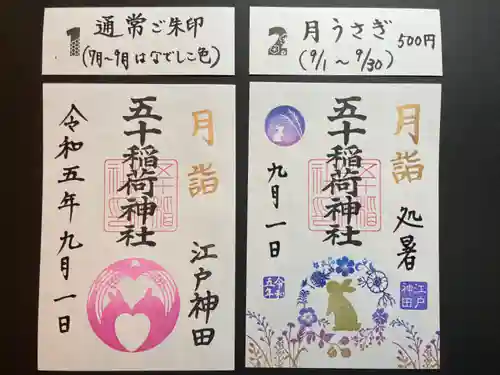 1 通常ご朱印
(7月〜9月はなでしこ色)
2 月うさぎ 500円
(9/1〜9/30)
月詣
五十稲荷神社
江戸神田
令和五年九月一日
月詣
処暑
五十稲荷神社
九月一日
江戸神田
令和五年